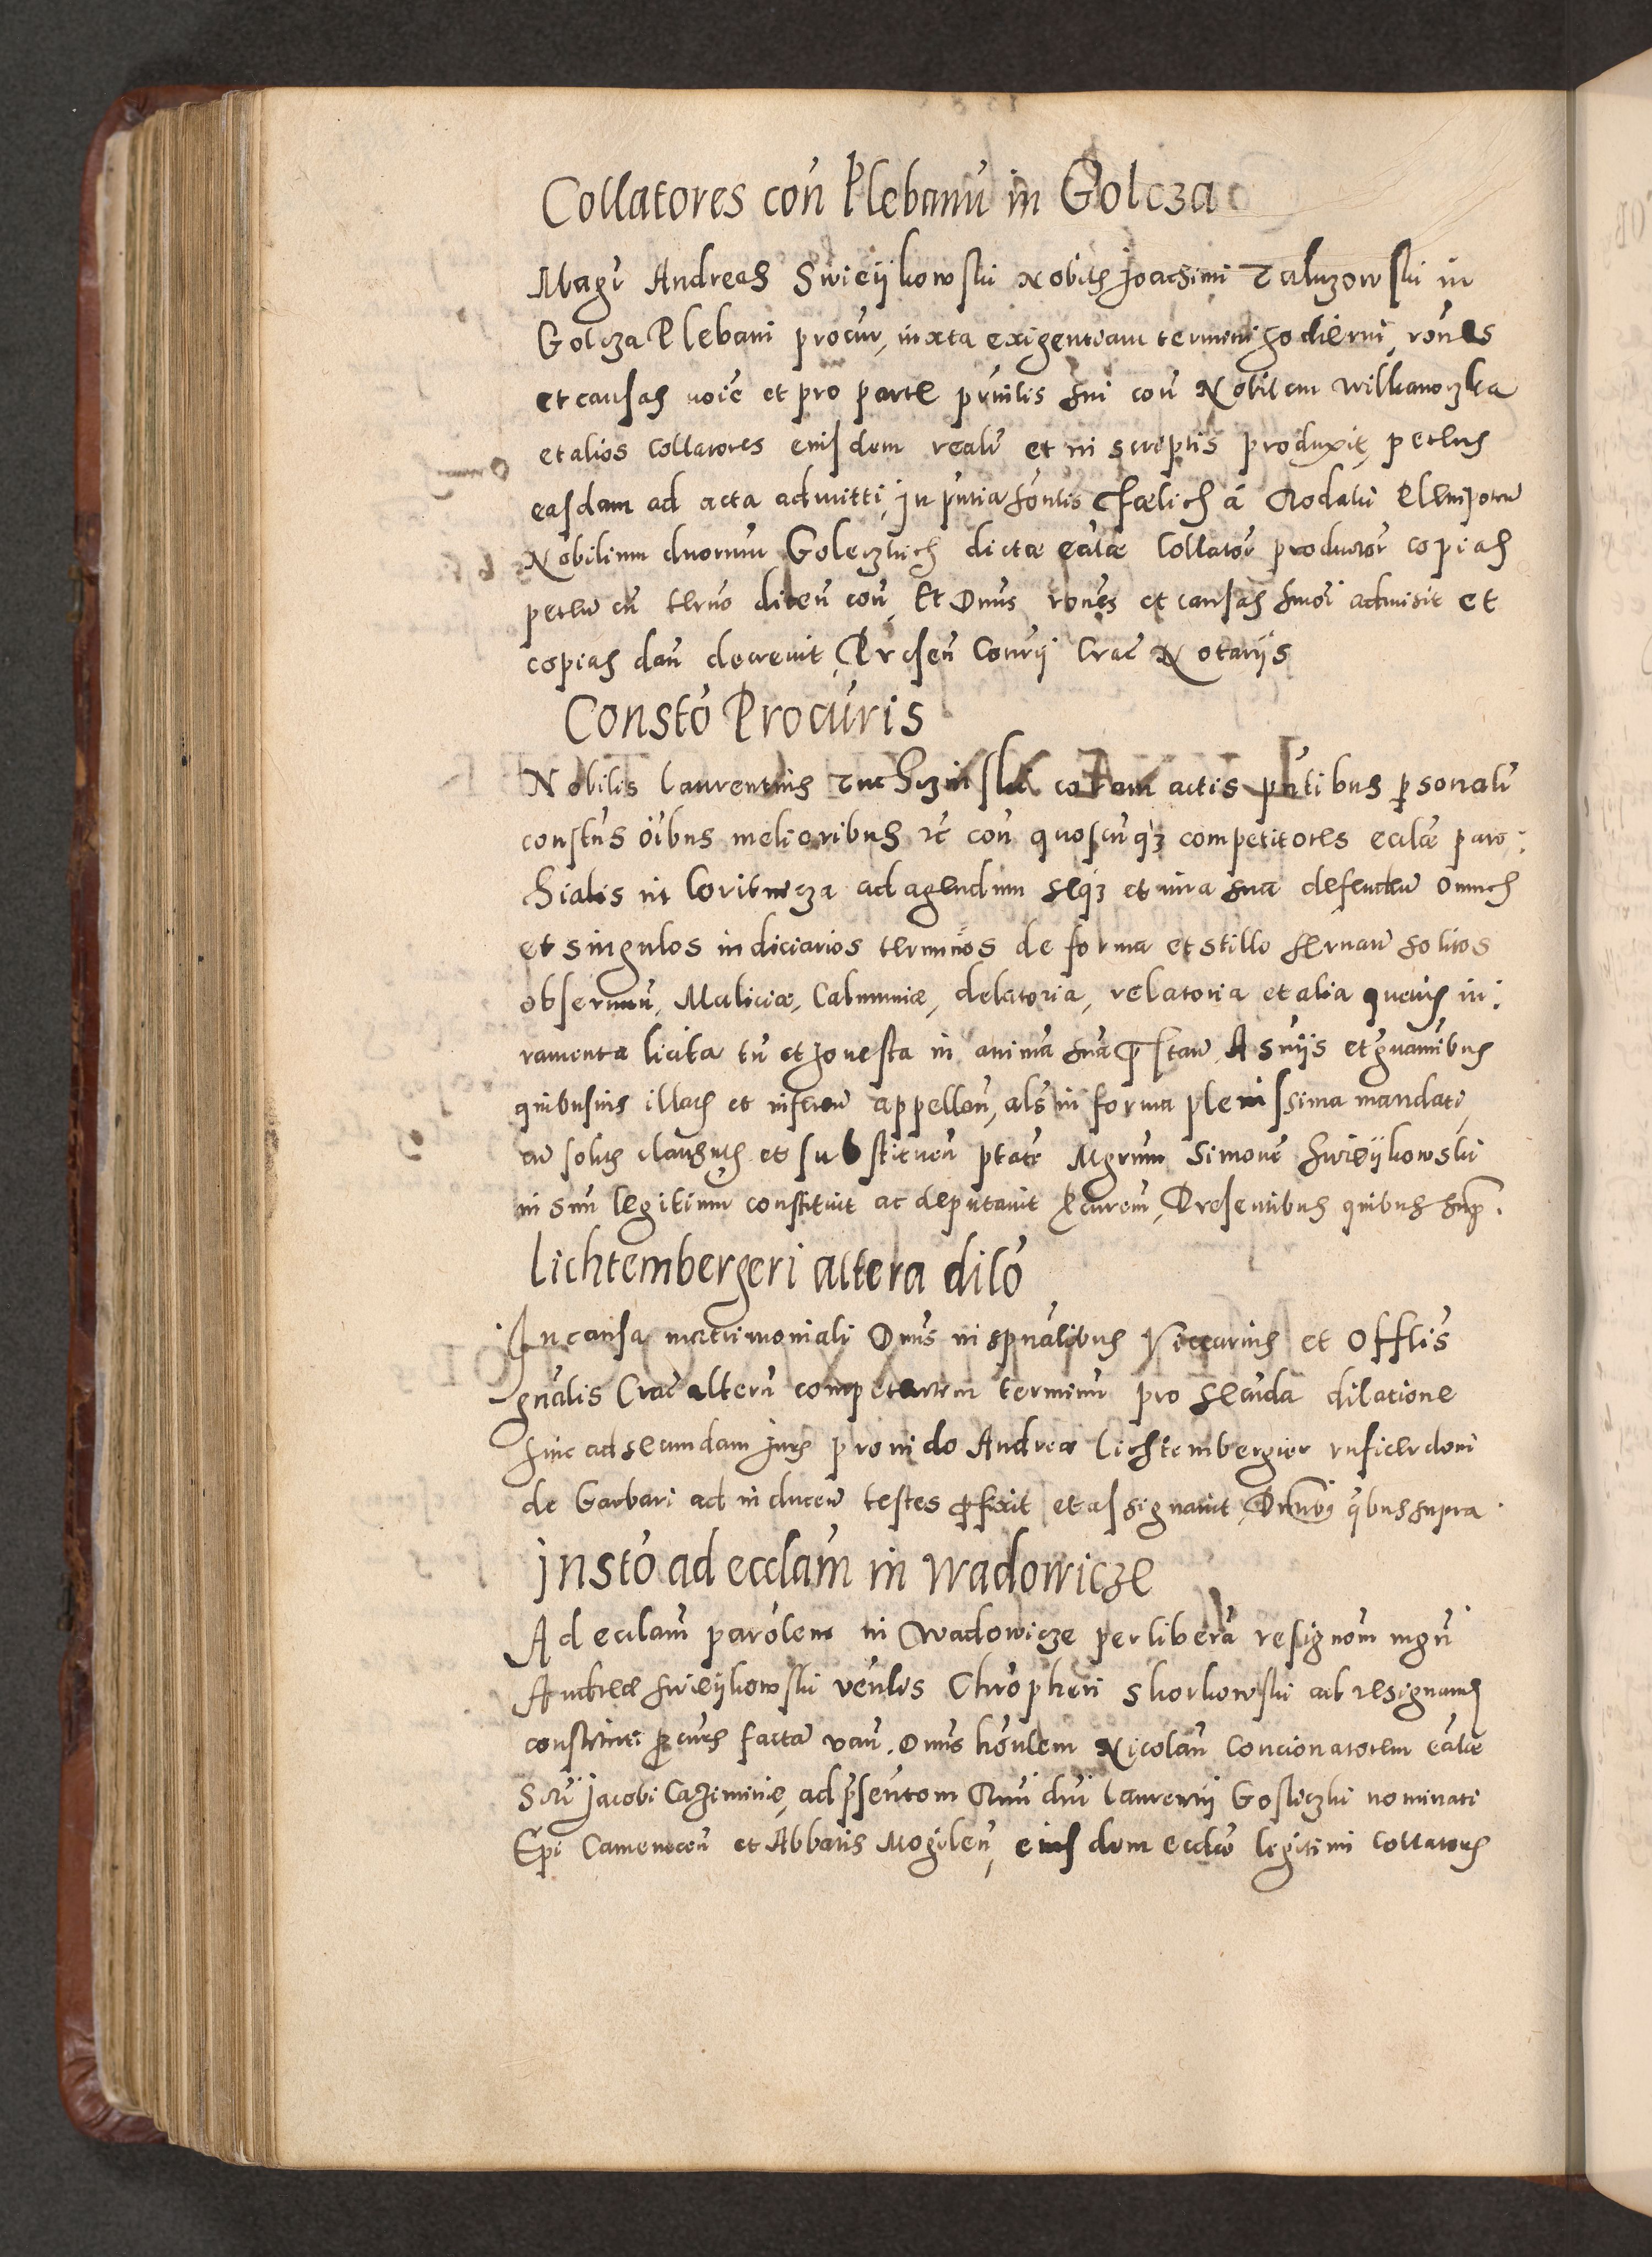 Collatores coń Plebanū in Golcza
Magr̄ Andreas Swieijkowski Nobilis Joachimi Taluzowski in
Golcza Plebani procur, iuxta exigentiam termini hodierni, rōnes
et causas noīe et pro parte prīnlis sui con̄ Nobilem Wilkanowzka
et alios Collatores eiusdem realr̄ et in scriptis produxit, petens
easdam ad acta admitti, In pn̄tia honlis Foelicis a Clodaw
Nobilium duorum Golczskich dictae ecclae Collator productor copias
peteń cū terno dicen con̄, Et Dnus rōnes et causas hmōi admisit et
copias dań decreuit, Presen̄ Conrij Crac Notarijs
Constō Procūris
Nobilis Laurentius Tuchzinski coram actis pn̄tibus personalr̄
constn̄s ōibus melioribus rc̄ con̄ quoscūq3 competitores ecclae paro:
chialis in Coribnicza ad agendum seq3 et iura sua defendeń omnes
et singulos iudiciarios terminos de forma et stillo seruań solitos
obseruan̄, Maliciae, Calumniae, delatoria, relatoria et alia queuis iu:
ramenta licita tn̄ et honesta in animā suā prestań, A sn̄ijs et guamibus
quibusuis illatis et inferen̄ appellan̄, als in forma plenissima mandati,
cū solitis clausulis et substituen̄ ptate Mgrum Simonē Swieijkowski
in suū legitimū constituit ac deputauit Procurem, Presentibus quibus sup.
Lichtembergeri altera dilō
In causa matrimoniali Dnus in spn̄alibus Viccarius et Offlis
gn̄alis Crac alterū competentem terminū pro secunda dilatione
hinc ad secundam Juris prouido Andreae Lichtembergier
de Garbari ad inducen̄ testes prefixit et assignauit, Pn̄tibus q̄bus supra.
Instō ad ecclam̄ in Wadowicze
Ad ecclam̄ parōlem in Wadowicze per liberā resignom̄ mgri
Andreae Swieijkowski ven̄lis Chrōpheri Skorkowski ad resignandū
constituti procuris factā vań. Dnus hon̄lem Nicolaū Concionatorem ecclae
Scti Jacobi Cazimiriae, ad presentom Rnūi dni Laurentij Gosliczki nominati
Epi Camenecen̄ et Abbatis Mogilen̄, eiusdem ecclae legitimi Collatoris